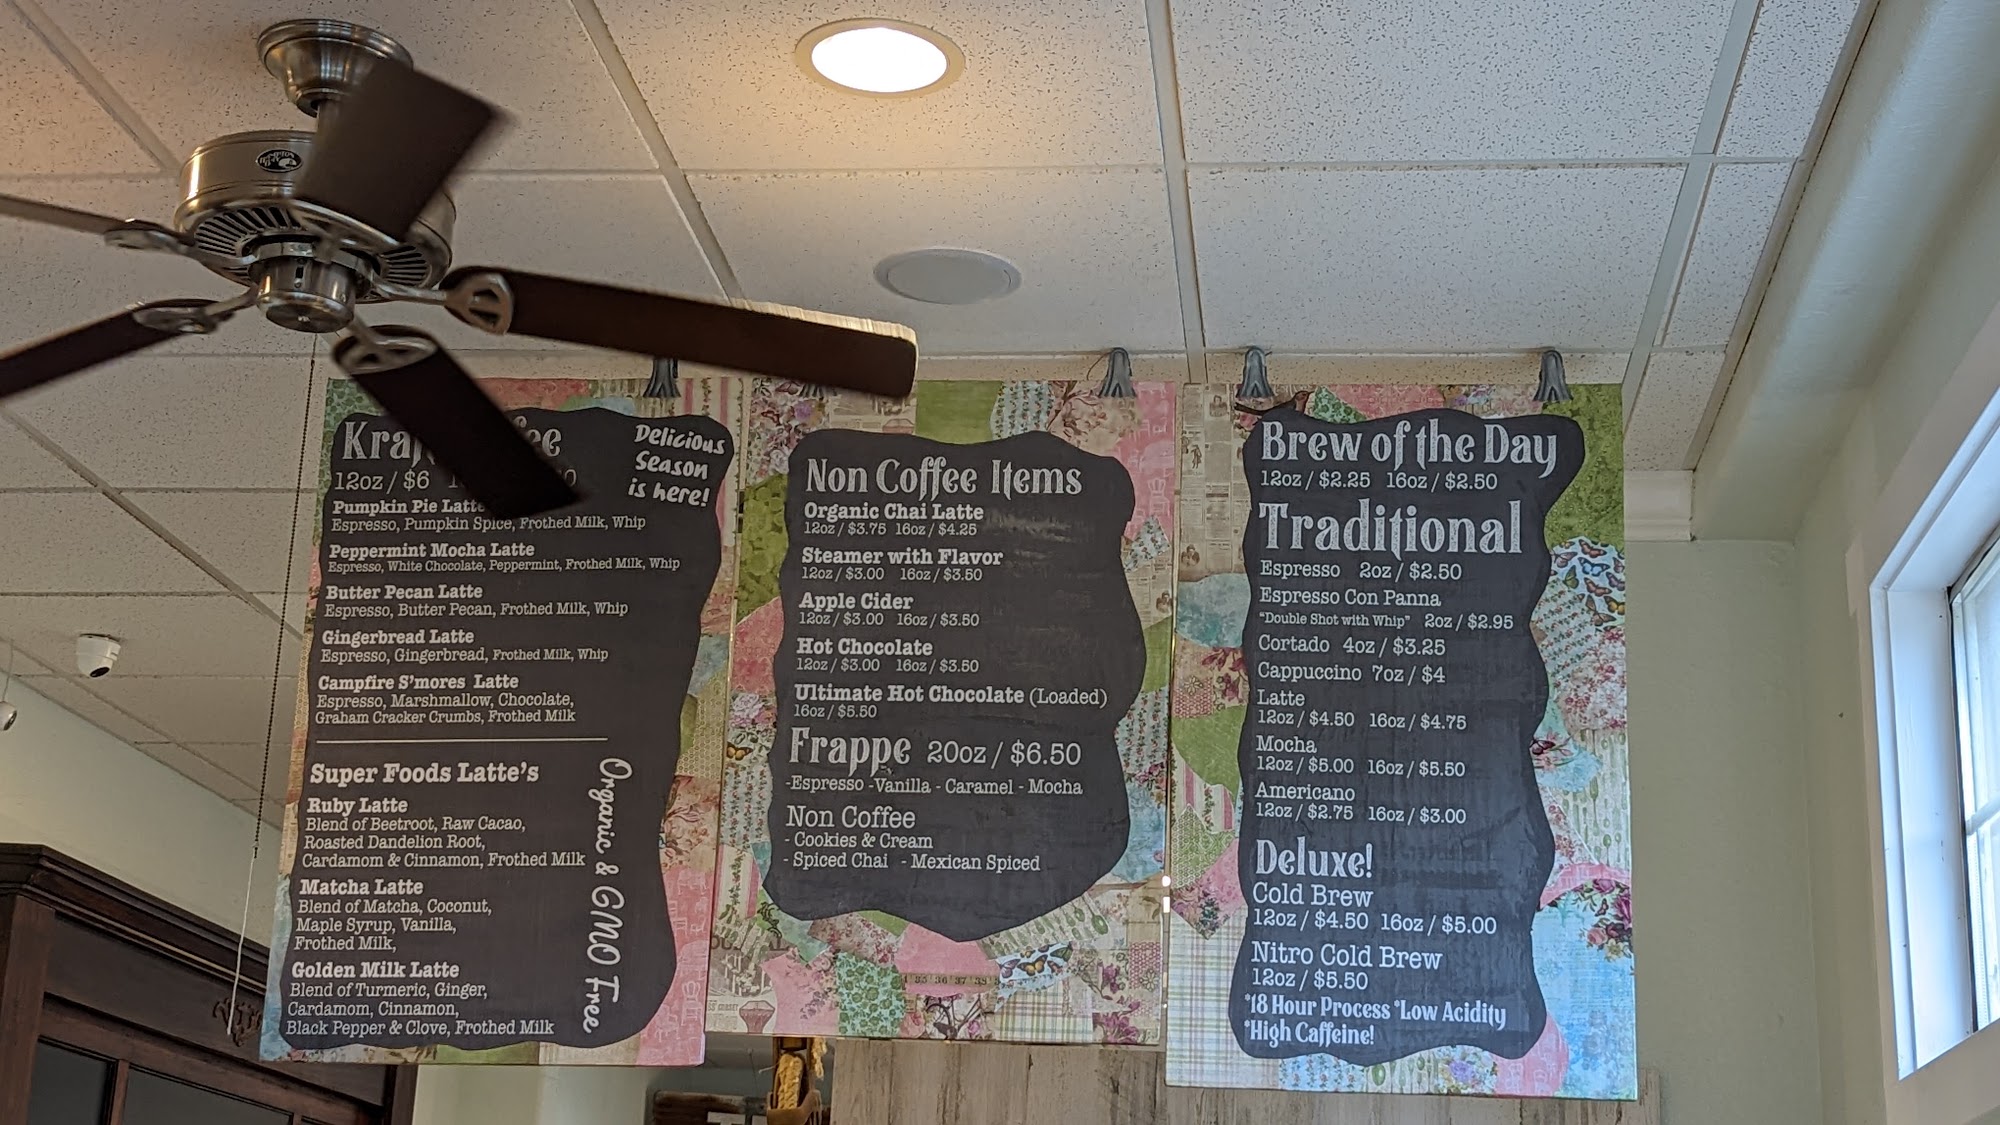 12oz / $6
Delicious
Season
is here!
Pumpkin Pie Latte
Espresso, Pumpkin Spice, Frothed Milk, Whip
Peppermint Mocha Latte
Espresso, White Chocolate, Peppermint, Frothed Milk, Whip
Butter Pecan Latte
Espresso, Butter Pecan, Frothed Milk, Whip
Gingerbread Latte
Espresso, Gingerbread, Frothed Milk, Whip
Campfire S'mores Latte
Espresso, Marshmallow, Chocolate,
Graham Cracker Crumbs, Frothed Milk
Super Foods Latte's
Ruby Latte
Blend of Beetroot, Raw Cacao,
Roasted Dandelion Root,
Cardamom & Cinnamon, Frothed Milk
Matcha Latte
Blend of Matcha, Coconut,
Maple Syrup, Vanilla,
Frothed Milk,
Golden Milk Latte
Blend of Turmeric, Ginger,
Cardamom, Cinnamon,
Black Pepper & Clove, Frothed Milk
Organic & GMO Free
Non Coffee Items
Organic Chai Latte
12oz / $3.75 16oz / $4.25
Steamer with Flavor
12oz / $3.00 16oz / $3.50
Apple Cider
12oz / $3.00 16oz / $3.50
Hot Chocolate
12oz / $3.00 16oz / $3.50
Ultimate Hot Chocolate (Loaded)
16oz / $5.50
Frappe 20oz / $6.50
-Espresso -Vanilla - Caramel - Mocha
Non Coffee
- Cookies & Cream
- Spiced Chai - Mexican Spiced
35 36 37 38
Brew of the Day
12oz / $2.25 16oz / $2.50
Traditional
Espresso 2oz / $2.50
Espresso Con Panna
"Double Shot with Whip" 2oz / $2.95
Cortado 4oz / $3.25
Cappuccino 7oz / $4
Latte
12oz / $4.50 16oz / $4.75
Mocha
12oz / $5.00 16oz / $5.50
Americano
12oz / $2.75 16oz / $3.00
Deluxe!
Cold Brew
12oz / $4.50 16oz / $5.00
Nitro Cold Brew
12oz / $5.50
*18 Hour Process *Low Acidity
*High Caffeine!